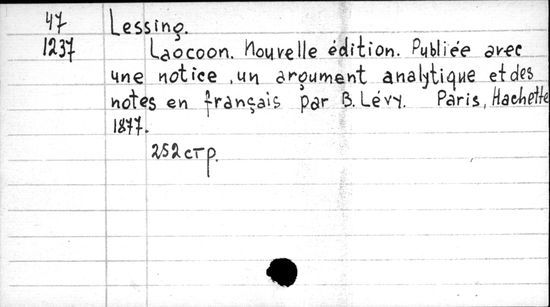 47 Lessing.
1237 Laocoon. Nouvelle édition. Publiée avec
une notice, un argument analytique et des
notes en français par B. Lévy. Paris, Hachette
1877.
252 стр.